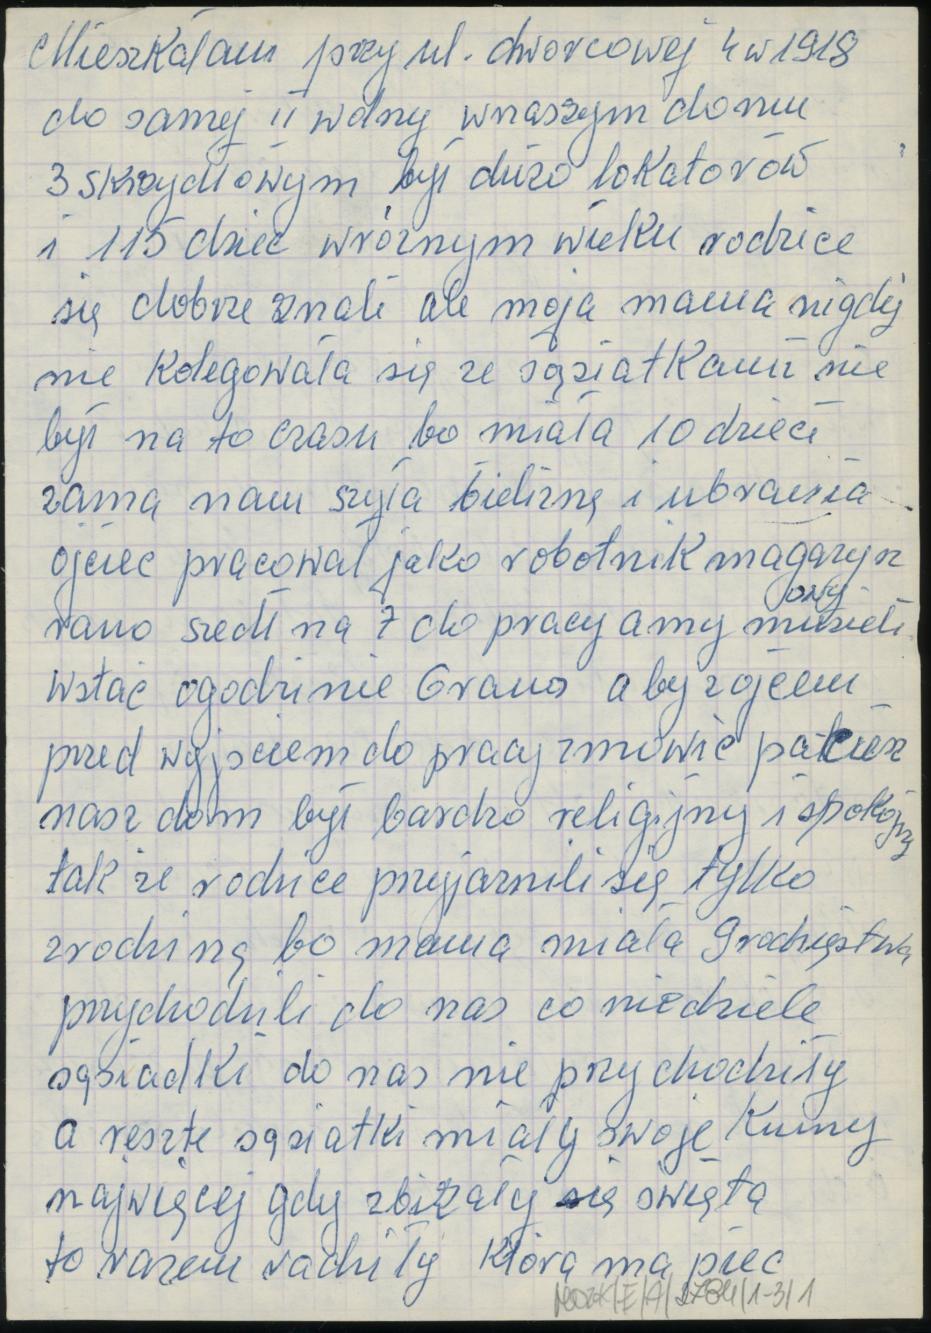 Mieszkałam przy ul. dworcowej 4 w 1918
do samej II wojny wnaszym domu
3 skrzydłowym był dużo lokatorów
i 115 dzieć wróżnym wieku rodzice
się dobrze znali ale moja mama nigdy
nie kolegowała się ze sąsiatkami nie
był na to czasu bo miała 10 dzieci
sama nam szyła bieliznę i ubrania
ojciec pracował jako robotnik magazyn
owy
rano szedł na 7 do pracy amy musieli
wstać ogodzinie 6 rano aby zojcem
przed wyjsciem do pracy zmówić paciesz
nasz dom był bardzo religijny i spokojny
tak ze rodzice przyjaznili się tylko
zrodziną bo mama miała 9 rodzięstwa
przychodzili do nas co niedziele
sąsiadki do nas nie przychodziły
a reszte sąsiatki miały swoje Kumy
najwięcej gdy zbiżały się święta
to razem radziły która ma piec
MOZK/E/A/2784/1-3/1